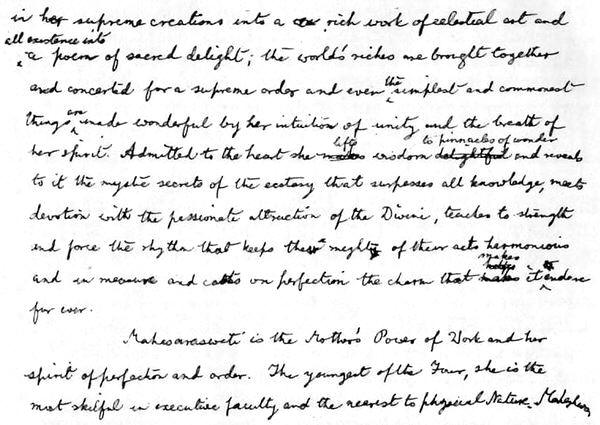 in her supreme creations into a rich work of celestial art and
all existence into
a poem of sacred delight; the world's riches are brought together
and concerted for a supreme order and even the simplest and commonest
things are made wonderful by her intuition of unity and the breath of
her spirit. Admitted to the heart she lifts wisdom to pinnacles of wonder and reveals
to it the mystic secrets of the ecstasy that surpasses all knowledge, meets
devotion with the passionate attraction of the Divine, teaches to strength
and force the rhythm that keeps the might of their acts harmonious
and in measure and casts on perfection the charm that makes it endure
for ever.
Mahasaraswati is the Mother's Power of Work and her
spirit of perfection and order. The youngest of the Four, she is the
most skilful in executive faculty and the nearest to physical Nature.